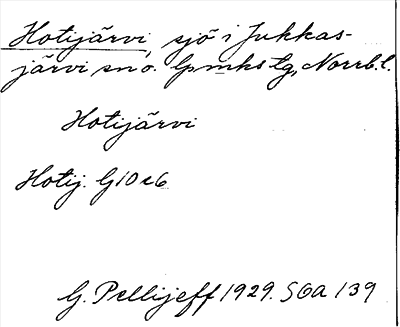 Hotijärvi, sjö i Jukkas-
järvi sn o. lpmks tg, Norrb. l.
Hotijärvi
Hotij. G10 c6
G. Pellijeff 1929. SOA 139